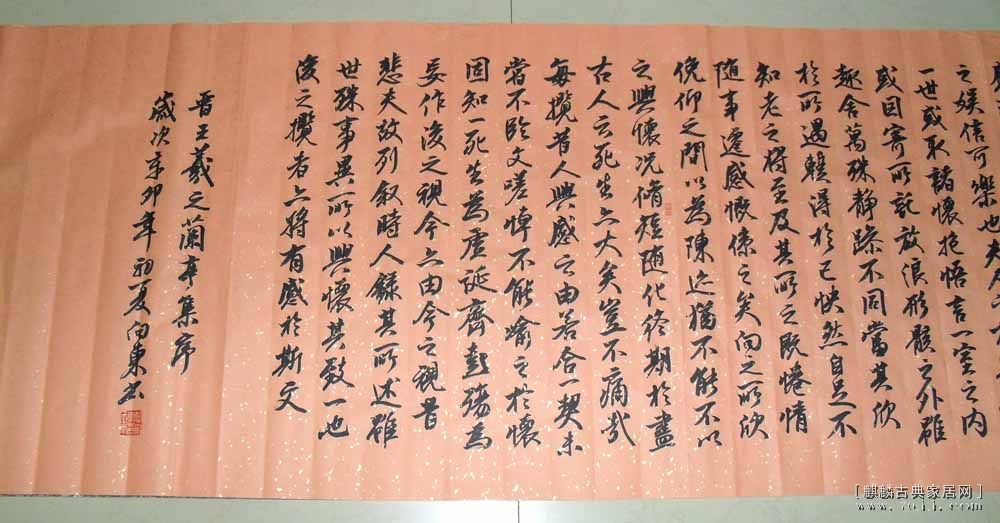 之娱信可樂也夫
一世或取諸懷抱悟言一室之内
或因寄所託放浪形骸之外雖
趣舍萬殊靜躁不同當其欣
於所遇輒得於己怏然自足不
知老之将至及其所之既惓情
随事遷感慨係之矣向之所欣
俛仰之間以為陳迹猶不能不以
之興懷况脩短随化終期於盡
古人云死生亦大矣豈不痛哉
每攬昔人興感之由若合一契未
嘗不臨文嗟悼不能喻之於懷
固知一死生為虛誕齊彭殤為
妄作後之視今亦由今之視昔
悲夫故列叙時人錄其所述雖
世殊事異所以興懷其致一也
後之攬者亦将有感於斯文
晋王羲之蘭亭集序
歲次辛卯年初夏向東書
[麒麟古典家居网]